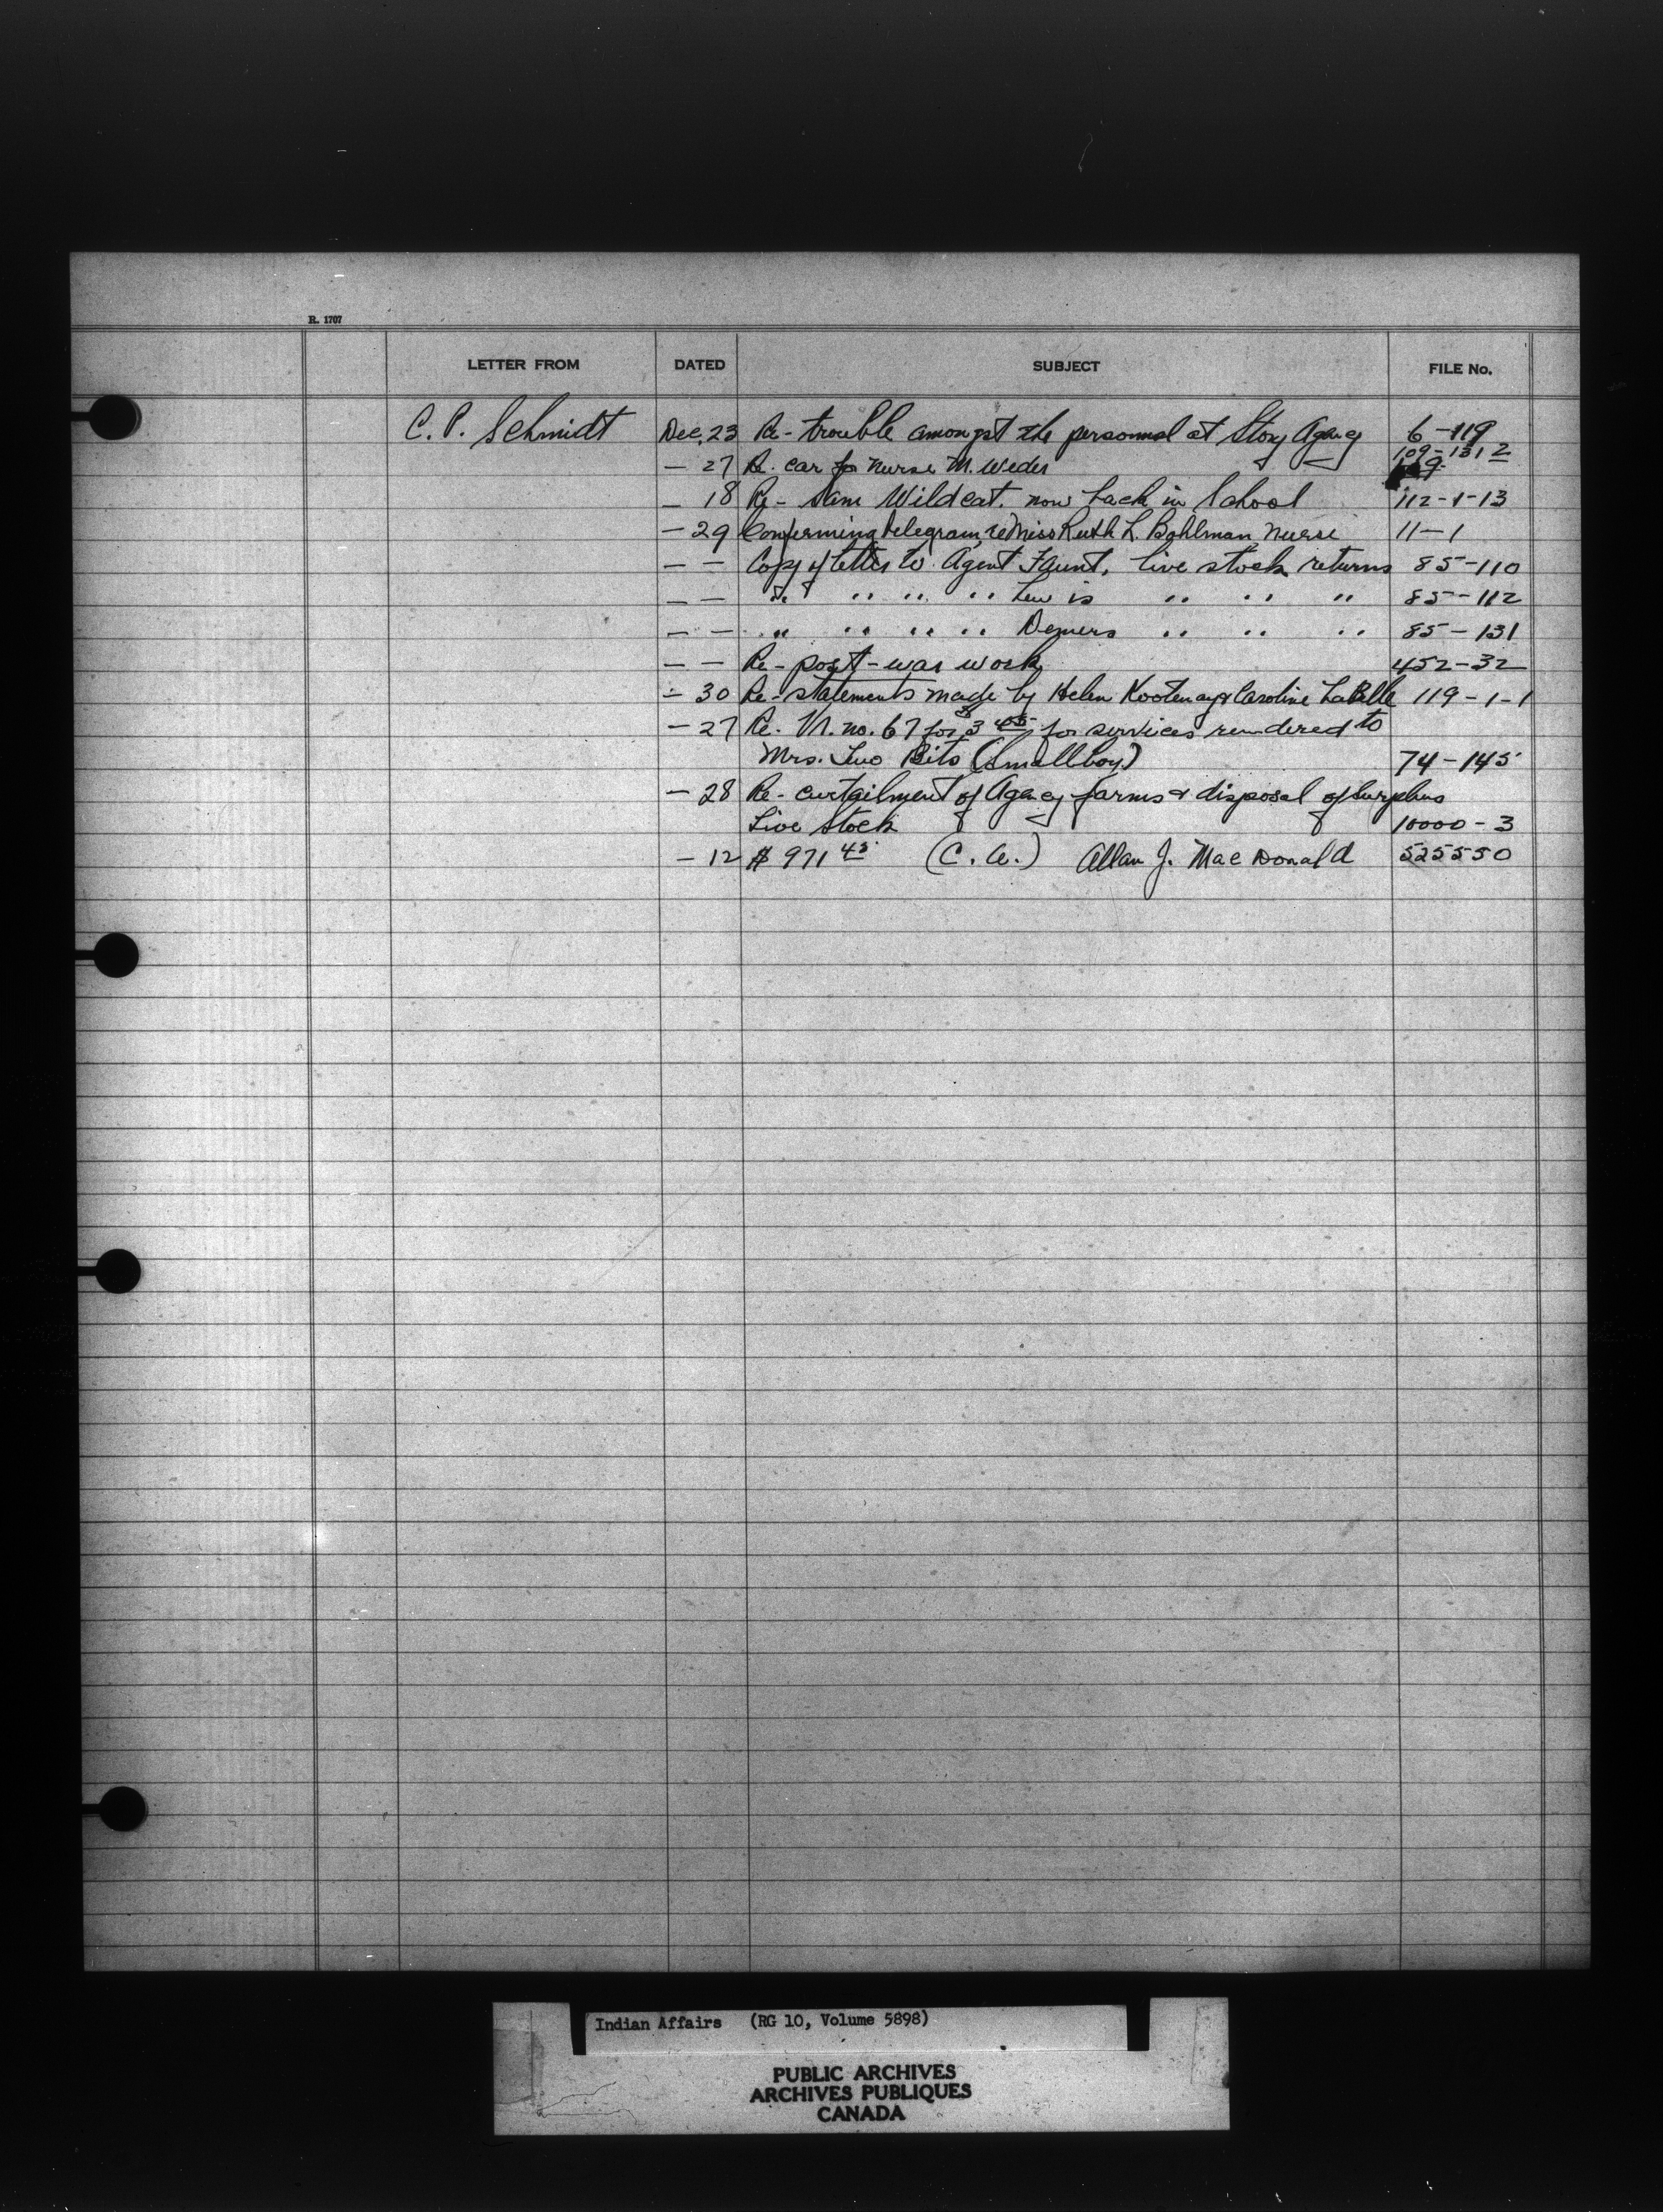 R. 1707
LETTER FROM DATED SUBJECT FILE No.
C. P. Schmidt Dec. 23 Re - trouble amongst the personnel at Stony Agency 6-119
— 27 Re. car for nurse M. Weder 109-131 2
— 18 Re - Sam Wildcat. now back in School 112-1-13
— 29 Confirming telegram, re Miss Ruth L. Bohlman, nurse 11-1
— — Copy of letter to Agent Faunt, live stock returns 85-110
— — " " " " Lewis " " " 85-112
— — " " " " Demers " " " 85-131
— — Re - post-war work 452-32
— 30 Re - statements made by Helen Kootenay & Caroline LaBelle 119-1-1
— 27 Re. Vr. no. 67 for $3 45 for services rendered to
Mrs. Two Bits (Smallboy) 74-145
— 28 Re - curtailment of Agency farms & disposal of surplus
Live stock 10000-3
— 12 $ 971 45 (C. A.) Allan J. MacDonald 525550
Indian Affairs (RG 10, Volume 5898)
PUBLIC ARCHIVES
ARCHIVES PUBLIQUES
CANADA